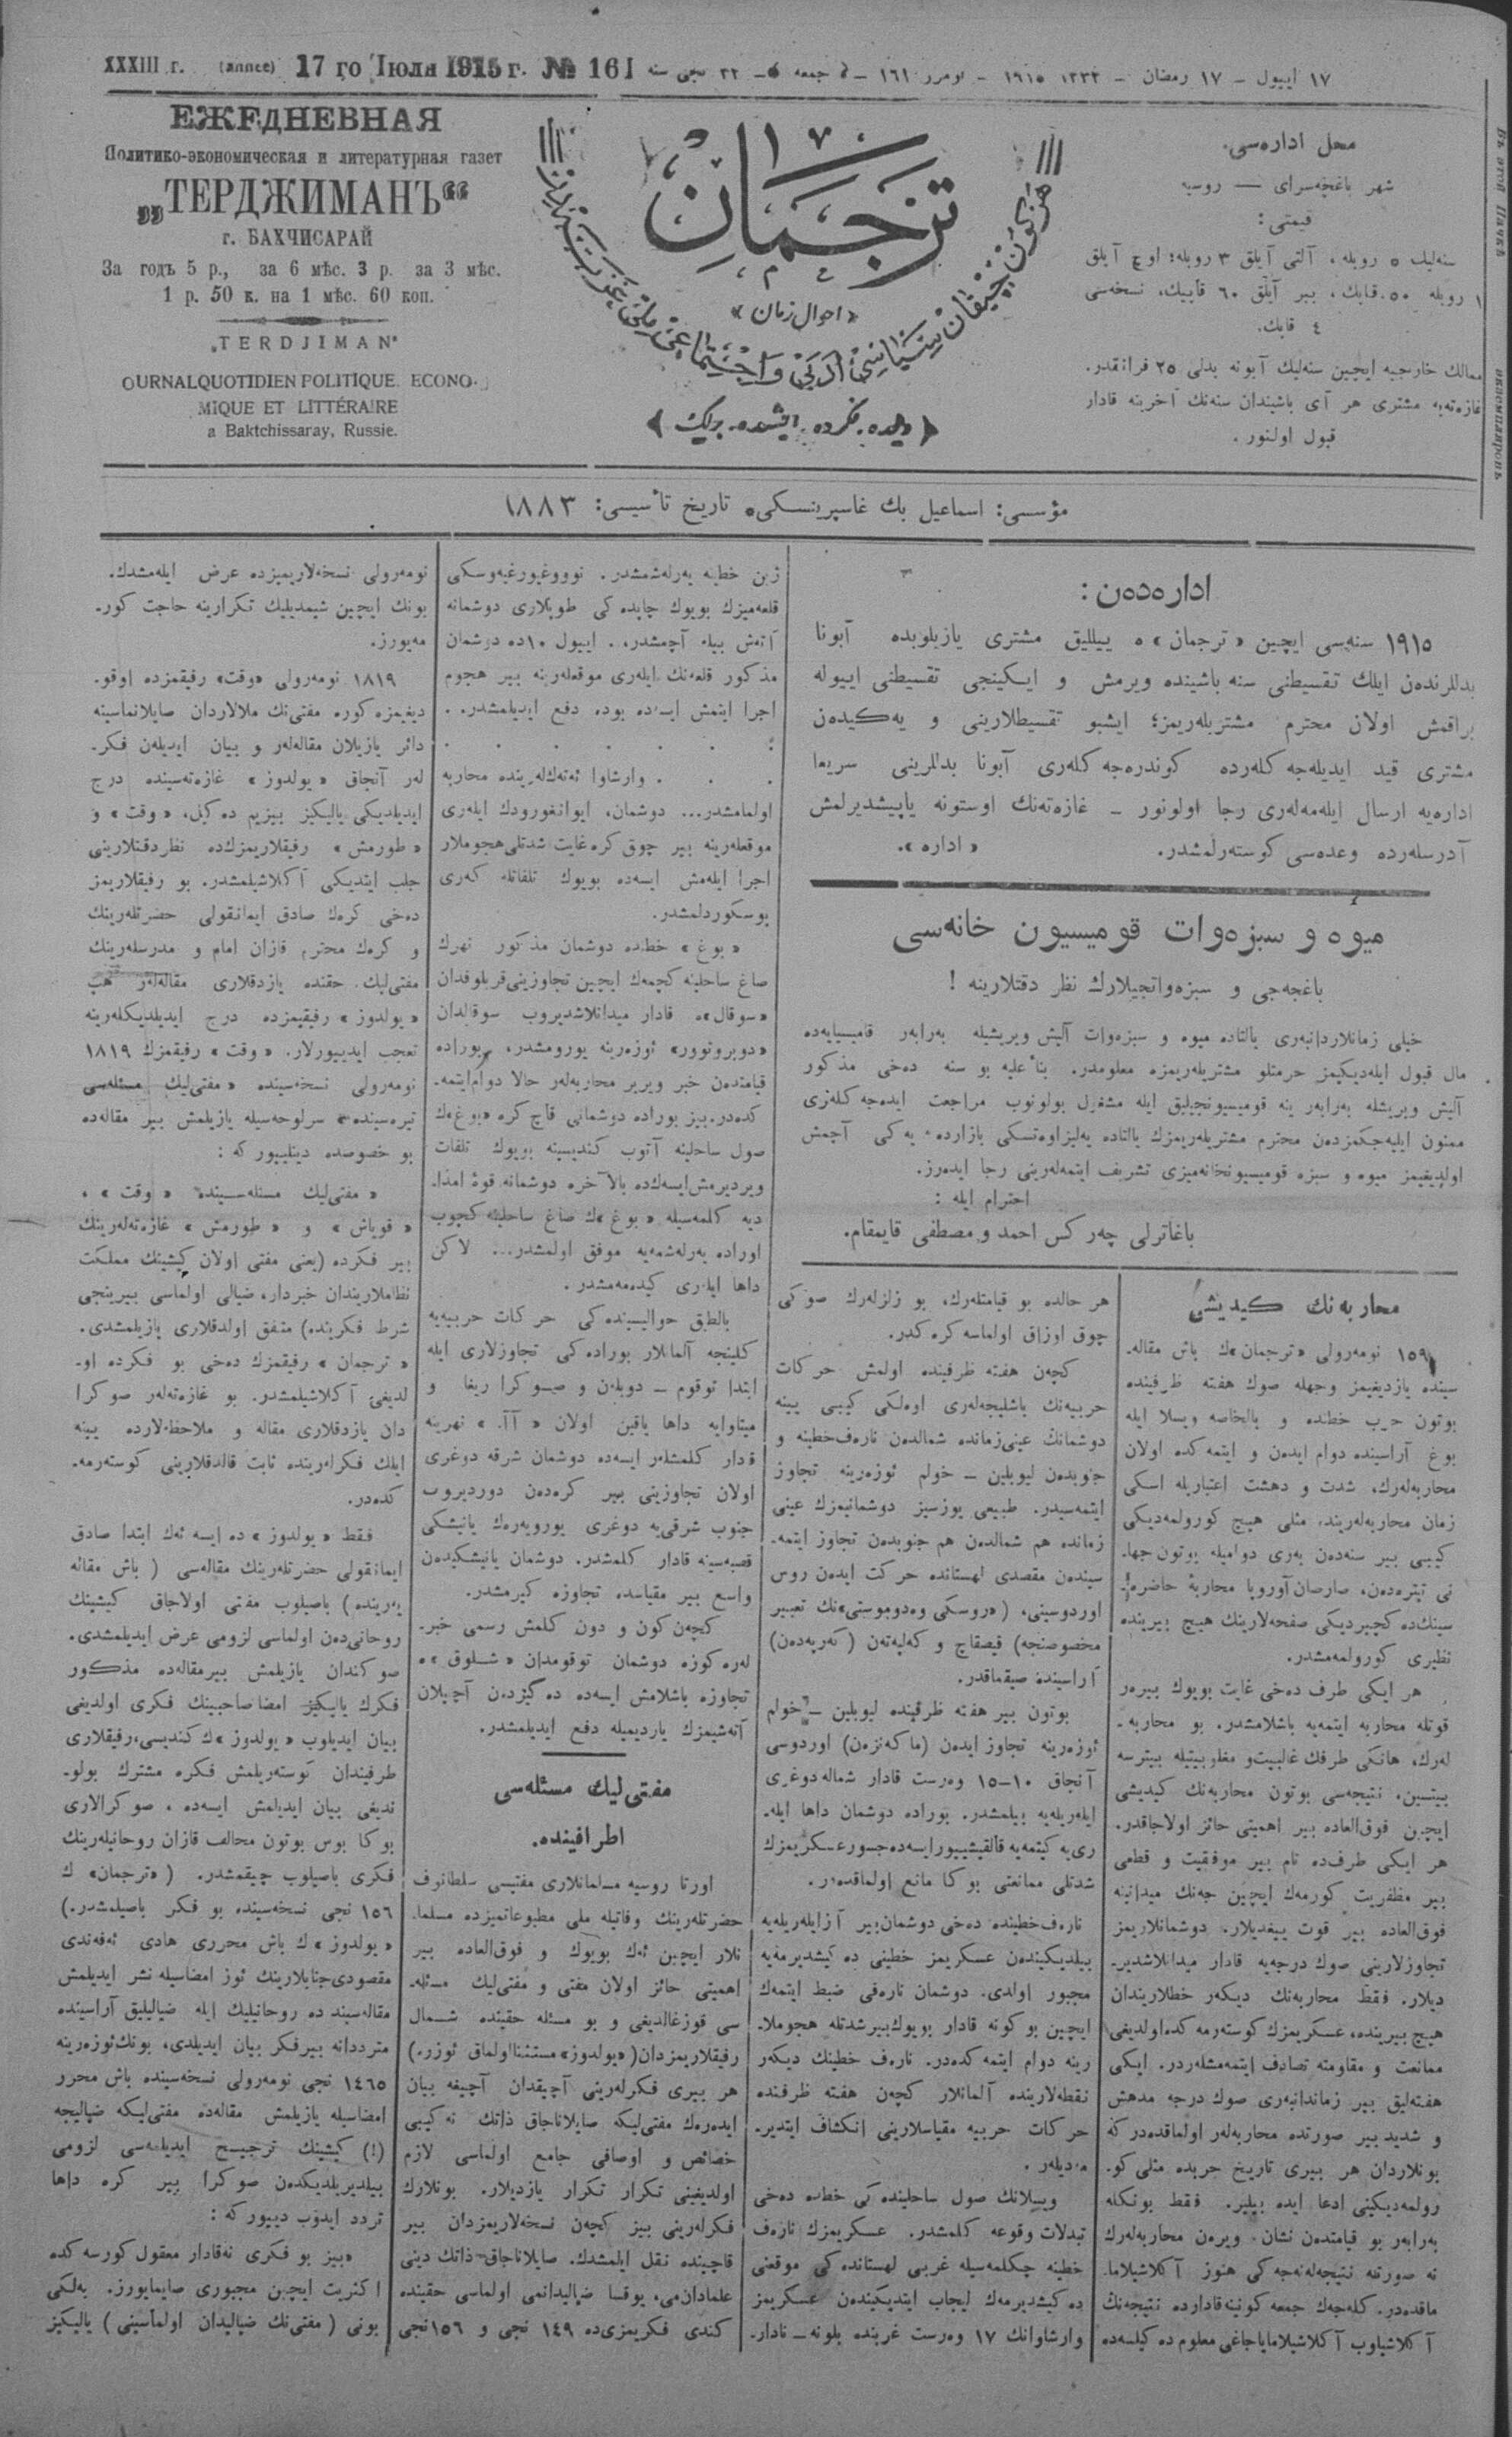 XXXIII г. (аnnее) 17 го Іюля 1915 г. № 161
١٧ اییول – ١٧ رمضان – ١٣٣٣ ١٩١٥ – نومرو ١٦١ – جمعه – ٣٣ نجی سنه
ЕЖЕДНЕВНАЯ
Политико-экономическая и литературная газет
„ТЕРДЖИМАНЪ“
г. БАХЧИСАРАЙ
За годъ 5 р., за 6 мѣс. 3 р. за 3 мѣс.
1 р. 50 к. на 1 мѣс. 60 коп.
„TERDJIMAN"
OURNAL QUOTIDIEN POLITIQUE. ECONO-
MIQUE ET LITTÉRAIRE
a Baktchissaray, Russie.
ترجمان
«احوال زمان»
«دیلده، فکرده، ایشده، برلك»
محل اداره‌سی.
شهر باغچه‌سرای — روسیه
قیمتی:
سنه‌لیك ٥ روبله، آلتی آیلق ٣ روبله؛ اوچ آیلق
١ روبله ٥٠ قاپك، بیر آیلق ٦٠ قاپیك، نسخه‌سی
٤ قاپك.
ممالك خارجیه ایچین سنه‌لیك آبونه بدلی ٢٥ فرانقدر.
غازه‌ته‌یه مشتری هر آی باشیندان سنه‌نك آخرینه قادار
قبول اولنور.
مؤسسی: اسماعیل بك غاسپرینسکی، تاریخ تأسیسی: ١٨٨٣
اداره‌ده‌ن:
١٩١٥ سنه‌سی ایچین «ترجمان»ه ییللیق مشتری یازیلوبده آبونا
بدللرنده‌ن ایلك تقسیطنی سنه باشینده ویرمش و ایکینجی تقسیطنی اییوله
براقمش اولان محترم مشتریله‌ریمز؛ ایشبو تقسیطلارینی و یه‌کیده‌ن
مشتری قید ایدیله‌جه‌كله‌رده کوندره‌جه‌كله‌ری آبونا بدللرینی سریعا
اداره‌یه ارسال ایله‌مه‌له‌ری رجا اولونور – غازه‌ته‌نك اوستونه یاپیشدیرلمش
آدرسله‌رده وعده‌سی کوسته‌رلمشدر. «اداره».
میوه و سبزه‌وات قومیسیون خانه‌سی
باغچه‌جی و سبزه‌واتجیلارك نظر دقتلارینه !
خیلی زمانلاردانبه‌ری یالتاده میوه و سبزه‌وات آلیش ویریشیله به‌رابه‌ر قامیسیایه‌ده
مال قبول ایله‌دیکیمز حرمتلو مشتریله‌ریمزه معلومدر. بنأ علیه بو سنه ده‌خی مذکور
آلیش ویریشله به‌رابه‌ر ینه قومیسیونجیلیق ایله مشغول بولونوب مراجعت ایده‌جه‌كله‌ری
ممنون ایلیه‌جكمزدن محترم مشتریله‌ریمزك یالتاده یه‌لیزاوه‌تسکی بازارده یه‌کی آچمش
اولدیغیمز میوه و سبزه قومیسیونخانه‌میزی تشریف ایتمه‌له‌رینی رجا ایده‌رز.
احترام ایله :
باغاترلی چه‌ركس احمد و مصطفی قایمقام.
محاربه‌نك کیدیشی
١٥٩ نومه‌رولی «ترجمان»ك باش مقاله‌-
سینده یازدیغیمز وجهله صوك هفته ظرفینده
بوتون حرب خطنده و بالخاصه ویسلا ایله
بوغ آراسینده دوام ایده‌ن و ایتمه‌کده اولان
محاربه‌له‌رك، شدت و دهشت اعتباریله اسکی
زمان محاربه‌له‌رینده مثلی هیچ کورولمه‌دیکی
کیبی بیر سنه‌ده‌ن به‌ری دوامیله بوتون جها-
نی تیتره‌ده‌ن، صارصان آوروپا محاربۀ حاضره-
سینك‌ده کچیردیکی صفحه‌لارینك هیچ بیرینده
نظیری کورولمه‌مشدر.
هر ایکی طرف ده‌خی غایت بویوك بیره‌ر
قوتله محاربه ایتمه‌یه باشلامشدر. بو محاربه-
له‌رك، هانکی طرفك غالبیت و مغلوبیتیله بیترسه
بیتسین، نتیجه‌سی بوتون محاربه‌نك کیدیشی
ایچین فوق‌العاده بیر اهمیتی حائز اولاجاقدر.
هر ایکی طرف‌ده تام بیر موفقیت و قطعی
بیر مظفریت کورمه‌ك ایچین جه‌نك میدانینه
فوق‌العاده بیر قوت ییغدیلار. دوشمانلاریمز
تجاوزلارینی صوك درجه‌یه قادار میدانلاشدیر-
دیلار. فقط محاربه‌نك دیکه‌ر خطلاریندان
هیچ بیرینده، عسکریمزك کوسته‌رمه‌کده‌اولدیغی
ممانعت و مقاومته تصادف ایتمه‌مشله‌ردر. ایکی
هفته‌لیق بیر زماندانبه‌ری صوك درجه مدهش
و شدید بیر صورتده محاربه‌له‌ر اولماقده‌درکه
بونلاردان هر بیری تاریخ حربده مثلی کو-
رولمه‌دیکینی ادعا ایده بیلیر. فقط بونکله
به‌رابه‌ر بو قیامتده‌ن نشان ویره‌ن محاربه‌له‌رك
نه صورتله نتیجه‌له‌نه‌جه‌کی هنوز آکلاشیلاما-
ماقده‌در. کله‌جه‌ك جمعه کونینه‌قادارده نتیجه‌نك
آکلاشیلوب آکلاشیلامایاجاغی معلوم ده‌کیلسه‌ده
هر حالده بو قیامتله‌رك، بو زلزله‌رك صوکی
چوق اوزاق اولماسه کره‌کدر.
کچه‌ن هفته ظرفینده اولمش حرکات
حربیه‌نك باشلیجه‌له‌ری اوه‌لکی کیبی یینه
دوشمانك عینی‌زمانده شمالدن ناره‌ف‌خطینه و
جنوبده‌ن لیوبلین – خولم ئوزه‌رینه تجاوز
ایتمه‌سیدر. طبیعی یوزسیز دوشمانیمزك عینی
زمانده هم شمالده‌ن هم جنوبده‌ن تجاوز ایتمه‌-
سینده‌ن مقصدی لهستانده حرکت ایده‌ن روس
اوردوسینی، («روسکی وه‌دوموستی»نك تعبیر
مخصوصنجه) قیصقاج و که‌لپه‌ته‌ن (که‌ریه‌ده‌ن)
آراسینده صیقماقدر.
بوتون بیر هفته ظرفینده لیوبلین – خولم
ئوزه‌رینه تجاوز ایده‌ن (ماکه‌نزه‌ن) اوردوسی
آنجاق ١٠–١٥ وه‌رست قادار شماله دوغری
ایله‌ریله‌یه بیلمشدر. بوراده دوشمان داها ایله-
ری‌یه کیتمه‌یه قالقیشییورایسه‌ده‌جسورعسکریمزك
شدتلی ممانعتی بوکا مانع اولماقده‌در.
ناره‌ف‌خطینده ده‌خی دوشمان‌بیر آزایله‌ریله‌یه
بیلدیکینده‌ن عسکریمز خطینی ده‌کیشدیرمه‌یه
مجبور اولدی. دوشمان ناره‌فی ضبط ایتمه‌ك
ایچین بو کونه قادار بویوك‌بیرشدتله هجوملا-
رینه دوام ایتمه‌کده‌در. ناره‌ف خطینك دیکه‌ر
نقطه‌لارینده آلمانلار کچه‌ن هفته ظرفنده
حرکات حربیه مقیاسلارینی انکشاف ایتدیر-
مه‌دیله‌ر.
ویسلانك صول ساحلینده‌کی خطده ده‌خی
تبدلات وقوعه کلمشدر. عسکریمزك ناره‌ف
خطینه چکلمه‌سیله غربی لهستانده‌کی موقعنی
ده‌کیشدیرمه‌ك لیجاب ایتدیکینده‌ن عسکریمز
وارشاوانك ١٧ وه‌رست غربنده بلونه–نادار-
ژین خطینه یه‌رله‌شمشدر. نووؤغیورغیه‌وسکی
قلعه‌میزك بویوك چاپده‌کی طوپلاری دوشمانه
آته‌ش بیله آچمشدر. اییول ١٠ده دوشمان
مذکور قلعه‌نك ایله‌ری موقعله‌رینه بیر هجوم
اجرا ایتمش ایسه‌ده بوده دفع ایدیلمشدر.
. . . . . . .
. . . وارشاوا ئه‌ته‌ك‌له‌رینده محاربه
اولمامشدر... دوشمان، ایوانغورودك ایله‌ری
موقعله‌رینه بیر چوق کره غایت شدتلی هجوملار
اجرا ایله‌مش ایسه‌ده بویوك تلفاتله که‌ری
پوسکوردلمشدر.
«بوغ» خطنده دوشمان مذکور نهرك
صاغ ساحلینه کچمه‌ك ایچین تجاوزینی‌قریلوفدان
«سوقال»ه قادار میدانلاشدیروب سوقالدان
«دوبروتوور» ئوزه‌رینه یورومشدر، بوراده
قیامتده‌ن خبر ویریر محاربه‌له‌ر حالا دوام‌ایتمه-
کده‌در. بیز بوراده دوشمانی قاچ کره «بوغ»ك
صول ساحلینه آتوب کندیسینه بویوك تلفات
ویردیرمش‌ایسه‌ك‌ده بالآخره دوشمانه قوۀ امدا-
دیه کلمه‌سیله «بوغ»ك صاغ ساحلینه کچوب
اوراده یه‌رله‌شمه‌یه موفق اولمشدر... لاکن
داها ایله‌ری کیده‌مه‌مشدر.
بالطیق حوالیسینده‌کی حرکات حربیه‌یه
کلینجه آلمانلار بوراده‌کی تجاوزلاری ایله
ابتدا توقوم – دوبله‌ن و صوکرا ریغا و
میتاوایه داها یاقین اولان «آآ» نهرینه
قدار کلمشله‌ر ایسه‌ده دوشمان شرقه دوغری
اولان تجاوزینی بیر کره‌ده‌ن دوردیروب
جنوب شرقی‌یه دوغری یورویه‌ره‌ك یانیشکی
قصبه‌سینه قادار کلمشدر. دوشمان یانیشکیده‌ن
واسع بیر مقیاسده تجاوزه کیرمشدر.
کچه‌ن کون و دون کلمش رسمی خبر-
له‌ره کوره دوشمان توقومدان «شلوق»ه
تجاوزه باشلامش ایسه‌ده ده‌کیزده‌ن آچیلان
آته‌شیمزك یاردیمیله دفع ایدیلمشدر.
مفتی‌لیك مسئله‌سی
اطرافینده.
اورتا روسیه مسلمانلاری مفتیسی سلطانوف
حضرتله‌رینك وفاتیله ملی مطبوعاتمیزده مسلما-
نلار ایچین ئه‌ك بویوك و فوق‌العاده بیر
اهمیتی حائز اولان مفتی و مفتی‌لیك مسئله-
سی قوزغالدیغی و بو مسئله حقینده شمال
رفیقلاریمزدان («یولدوز» مستثنا اولماق ئوزره)
هر بیری فکرله‌رینی آچیقدان آچیغه بیان
ایده‌ره‌ك مفتی‌لیکه صایلاناجاق ذاتك نه کیبی
خصائص و اوصافی جامع اولماسی لازم
اولدیغینی تکرار تکرار یازدیلار. بونلارك
فکرله‌رینی بیز کچه‌ن نسخه‌لاریمزدان بیر
قاچینده نقل ایلمشدك. صایلاناجاق ذاتك دینی
علمادان‌می، یوقسا ضیالیدانمی اولماسی حقینده
کندی فکریمزی‌ده ١٤٩ نجی و ١٥٦ نجی
نومه‌رولی نسخه‌لاریمزده عرض ایله‌مشدك.
بونك ایچین شیمدیلیك تکرارینه حاجت کور-
مه‌یورز.
١٨١٩ نومه‌رولی «وقت» رفیقمزده اوقو-
دیغیمزه کوره مفتی‌نك ملالاردان صایلانماسینه
دائر یازیلان مقاله‌له‌ر و بیان ایدیله‌ن فکر-
له‌ر آنجاق «یولدوز» غازه‌ته‌سینده درج
ایدیلدیکی یالیکیز بیزیم ده‌کل، «وقت» و
«طورمش» رفیقلاریمزك‌ده نظر دقتلارینی
جلب ایتدیکی آکلاشیلمشدر. بو رفیقلاریمز
ده‌خی کره‌ك صادق ایمانقولی حضرتله‌رینك
و کره‌ك محترم قازان امام و مدرسله‌رینك
مفتی‌لیك حقنده یازدقلاری مقاله‌له‌ر هپ
«یولدوز» رفیقیمزده درج ایدیلدیکله‌رینه
تعجب ایدییورلار. «وقت» رفیقمزك ١٨١٩
نومه‌رولی نسخه‌سینده «مفتی‌لیك مسئله‌سی
تیره‌سینده» سرلوحه‌سیله یازیلمش بیر مقاله‌ده
بو خصوصده دینلییورکه :
«مفتی‌لیك مسئله‌سینده «وقت»،
«قویاش» و «طورمش» غازه‌ته‌له‌رینك
بیر فکرده (یعنی مفتی اولان کیشینك مملکت
نظاملاریندان خبردار، ضیالی اولماسی بیرینجی
شرط فکرینده) متفق اولدقلاری یازیلمشدی.
«ترجمان» رفیقمزك ده‌خی بو فکرده او-
لدیغی آکلاشیلمشدر. بو غازه‌ته‌له‌ر صوکرا
دان یازدقلاری مقاله و ملاحظه‌لارده یینه
ایلك فکرله‌رینده ثابت قالدقلارینی کوسته‌رمه-
کده‌در.
فقط «یولدوز» ده ایسه ئه‌ك ابتدا صادق
ایمانقولی حضرتله‌رینك مقاله‌سی (باش مقاله
یه‌رینده) باصیلوب مفتی اولاجاق کیشینك
روحانی‌ده‌ن اولماسی لزومی عرض ایدیلمشدی.
صوکندان یازیلمش بیرمقاله‌ده مذکور
فکرك یالیکیز امضا صاحبینك فکری اولدیغی
بیان ایدیلوب «یولدوز»ك کندیسی، رفیقلاری
طرفیندان کوسته‌ریلمش فکره مشترك بولو-
ندیغی بیان ایدیلمش ایسه‌ده، صوکرالاری
بوکا بوس بوتون مخالف قازان روحانیله‌رینك
فکری باصیلوب چیقمشدر. («ترجمان» ك
١٥٦ نجی نسخه‌سینده بو فکر باصیلمشدر.)
«یولدوز»ك باش محرری هادی ئه‌فه‌ندی
مقصودی‌جنابلارینك ئوز امضاسیله نشر ایدیلمش
مقاله‌سینده ده روحانیلیك ایله ضیالیلیق آراسینده
مترددانه بیرفکر بیان ایدیلدی، بونك‌ئوزه‌رینه
١٤٦٥ نجی نومه‌رولی نسخه‌سینده باش محرر
امضاسیله یازیلمش مقاله‌ده مفتی‌لیکه ضیالیجه
(!) کیشینك ترجیح ایدیلمه‌سی لزومی
بیلدیریلدیکده‌ن صوکرا بیر کره داها
تردد ایدوب دییورکه :
«بیز بو فکری نه‌قادار معقول کورسه‌ك‌ده
اکثریت ایچین مجبوری صایمایورز. یه‌لکی
بونی (مفتی‌نك ضیالیدان اولماسینی) یالیکیز